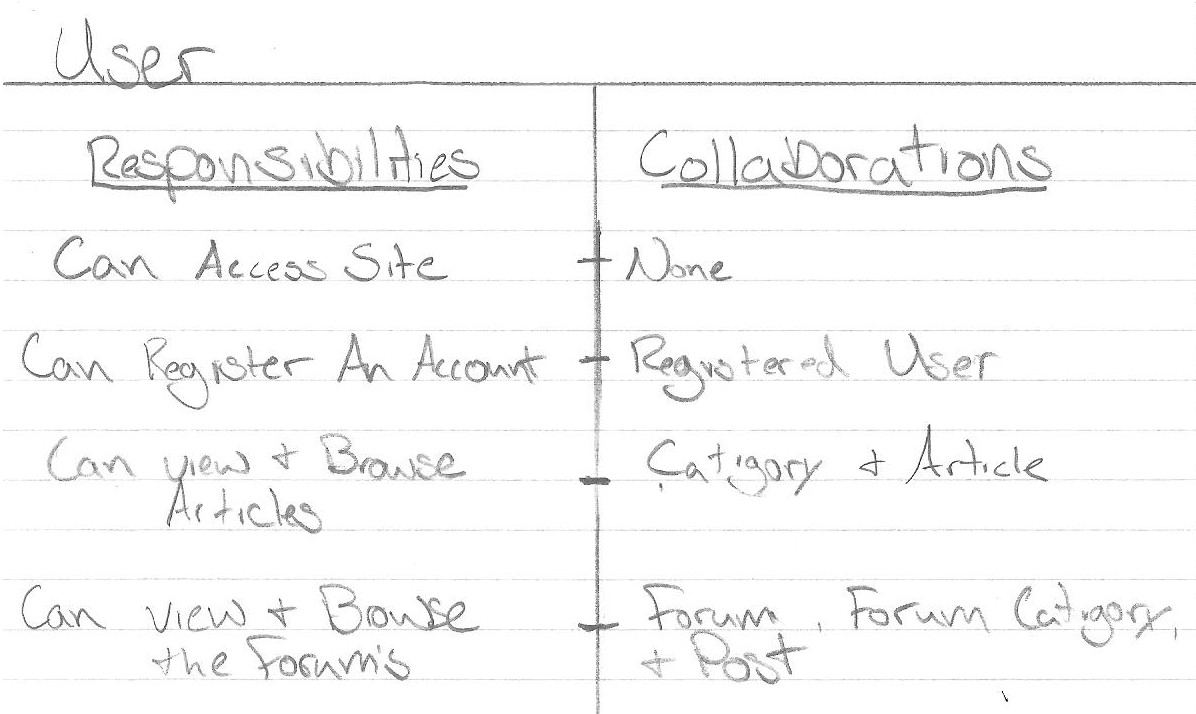 User
Responsibilities Collaborations
Can Access Site None
Can Register An Account Registered User
Can view + Browse Catigory + Article
Articles
Can view + Browse Forum, Forum Catigory,
the Forum's + Post